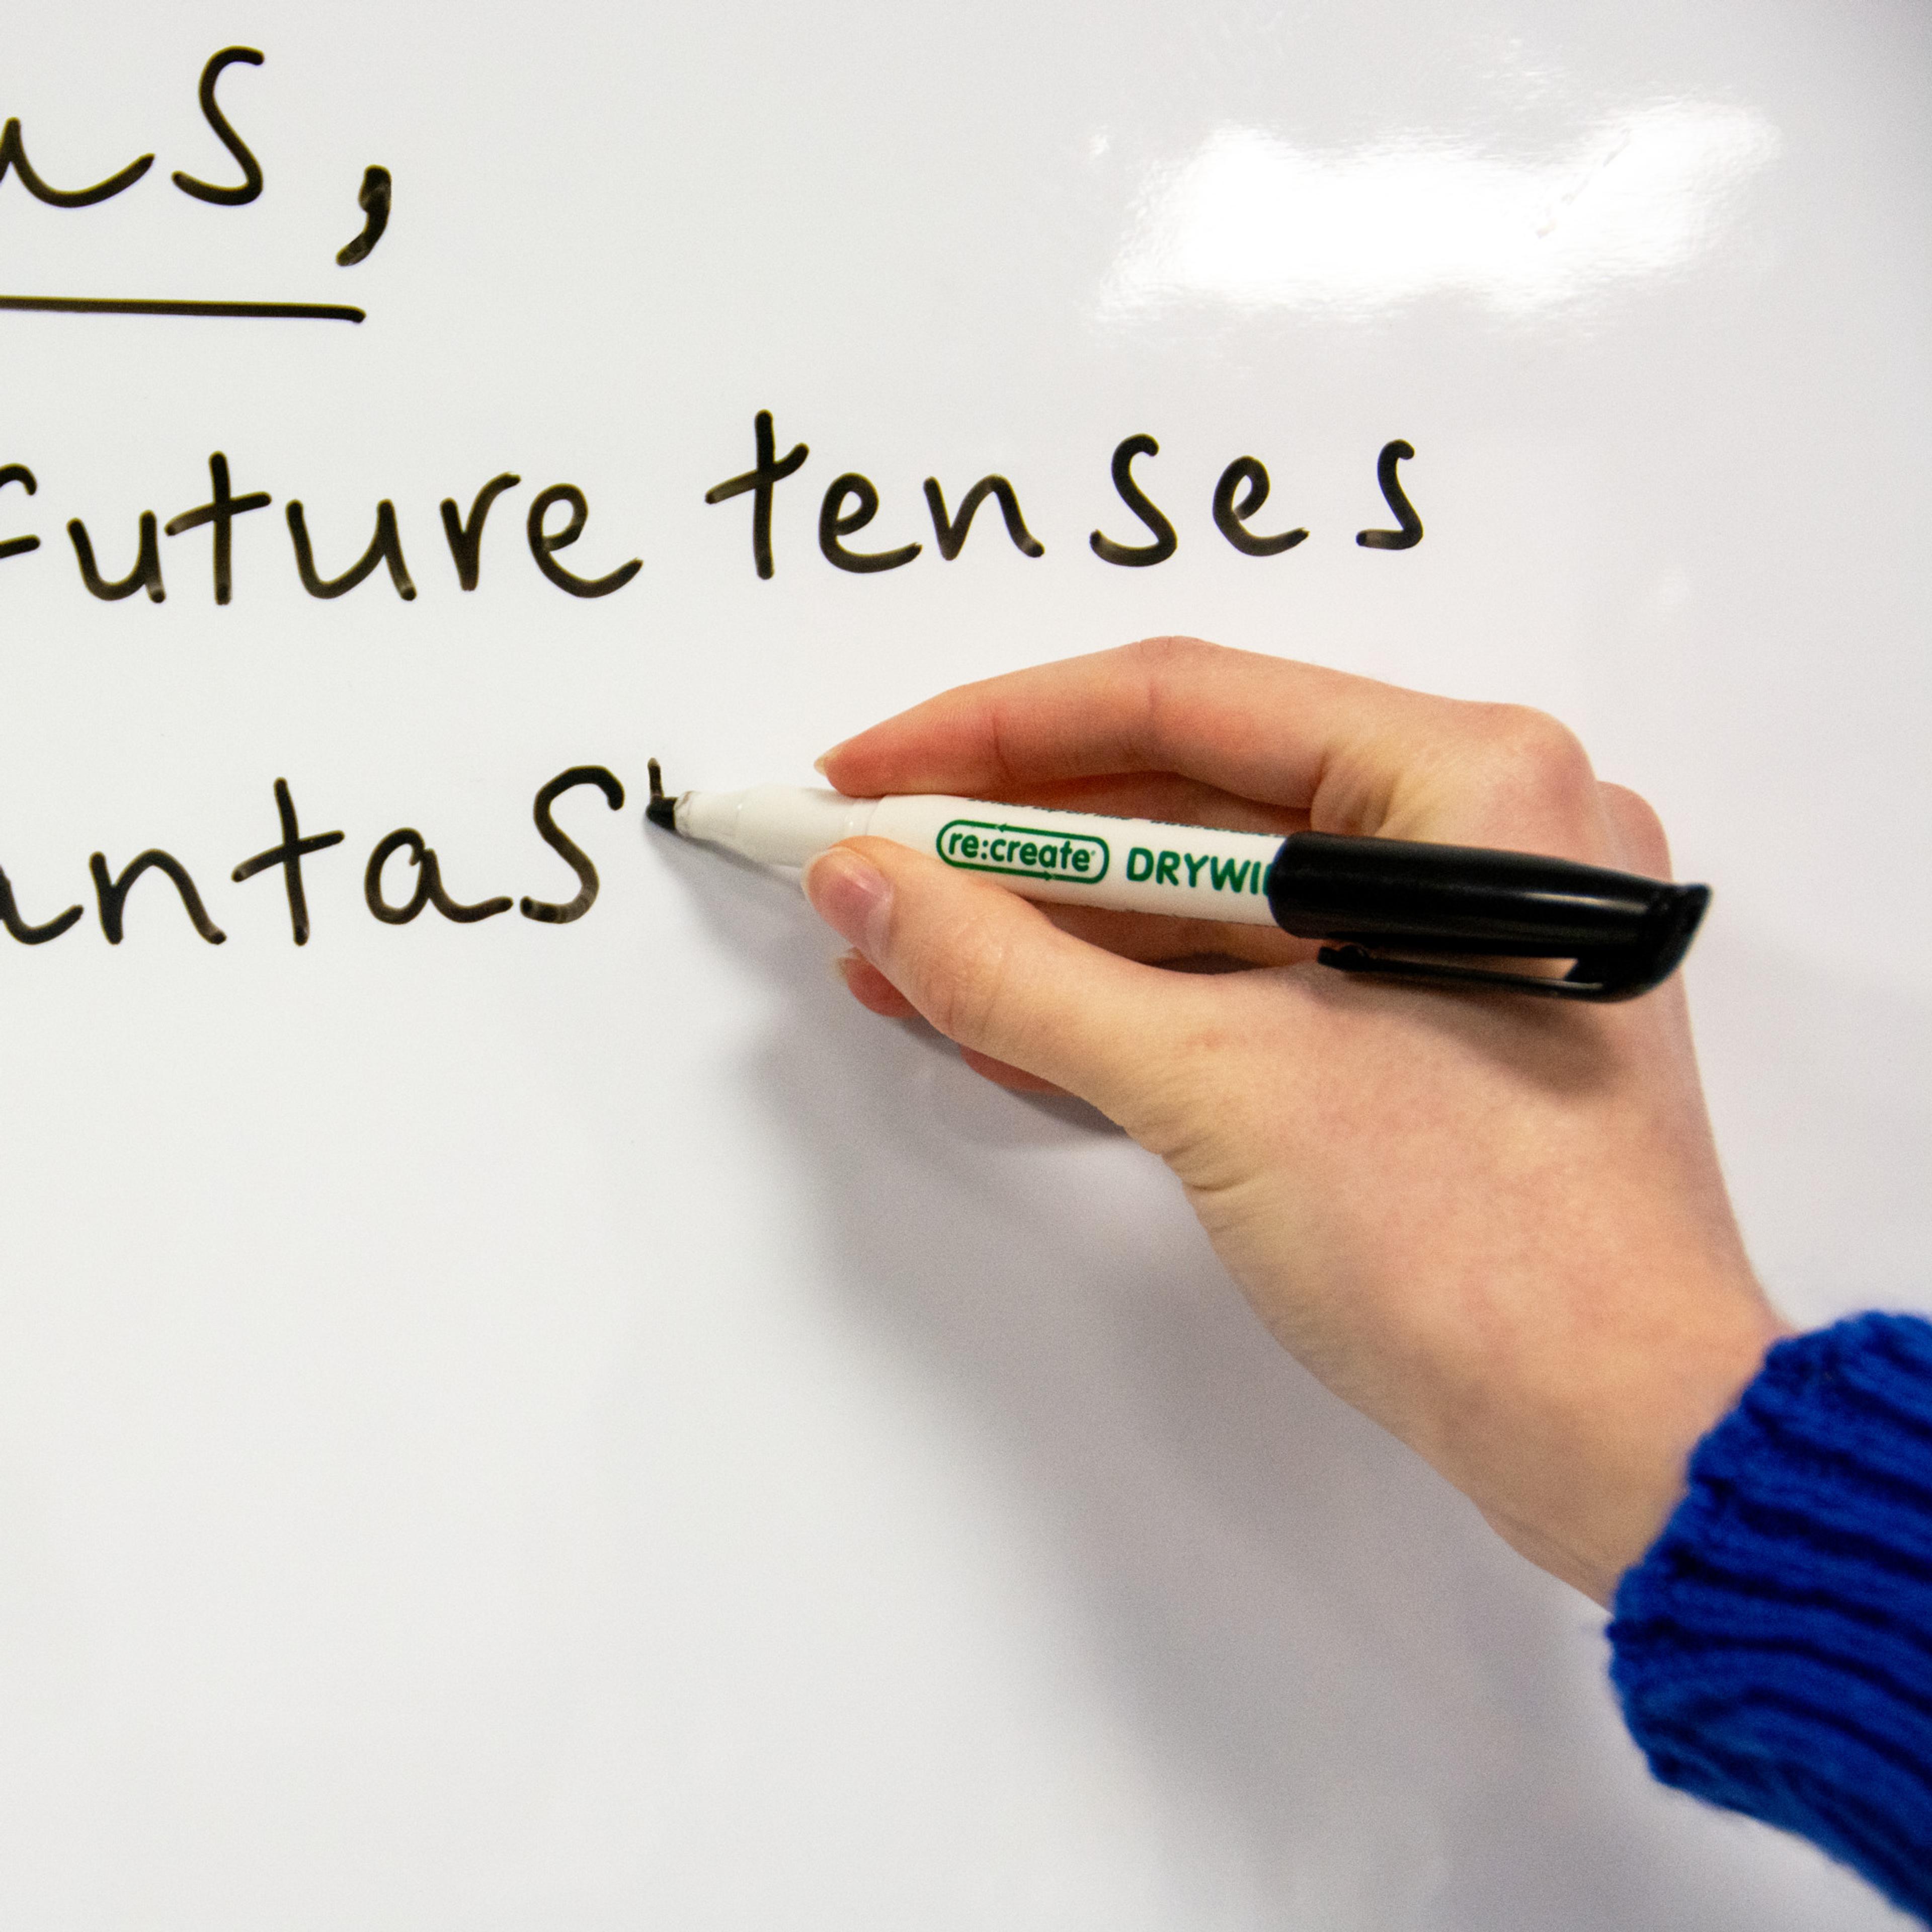 us,
future tenses
antas
re:create DRYWI